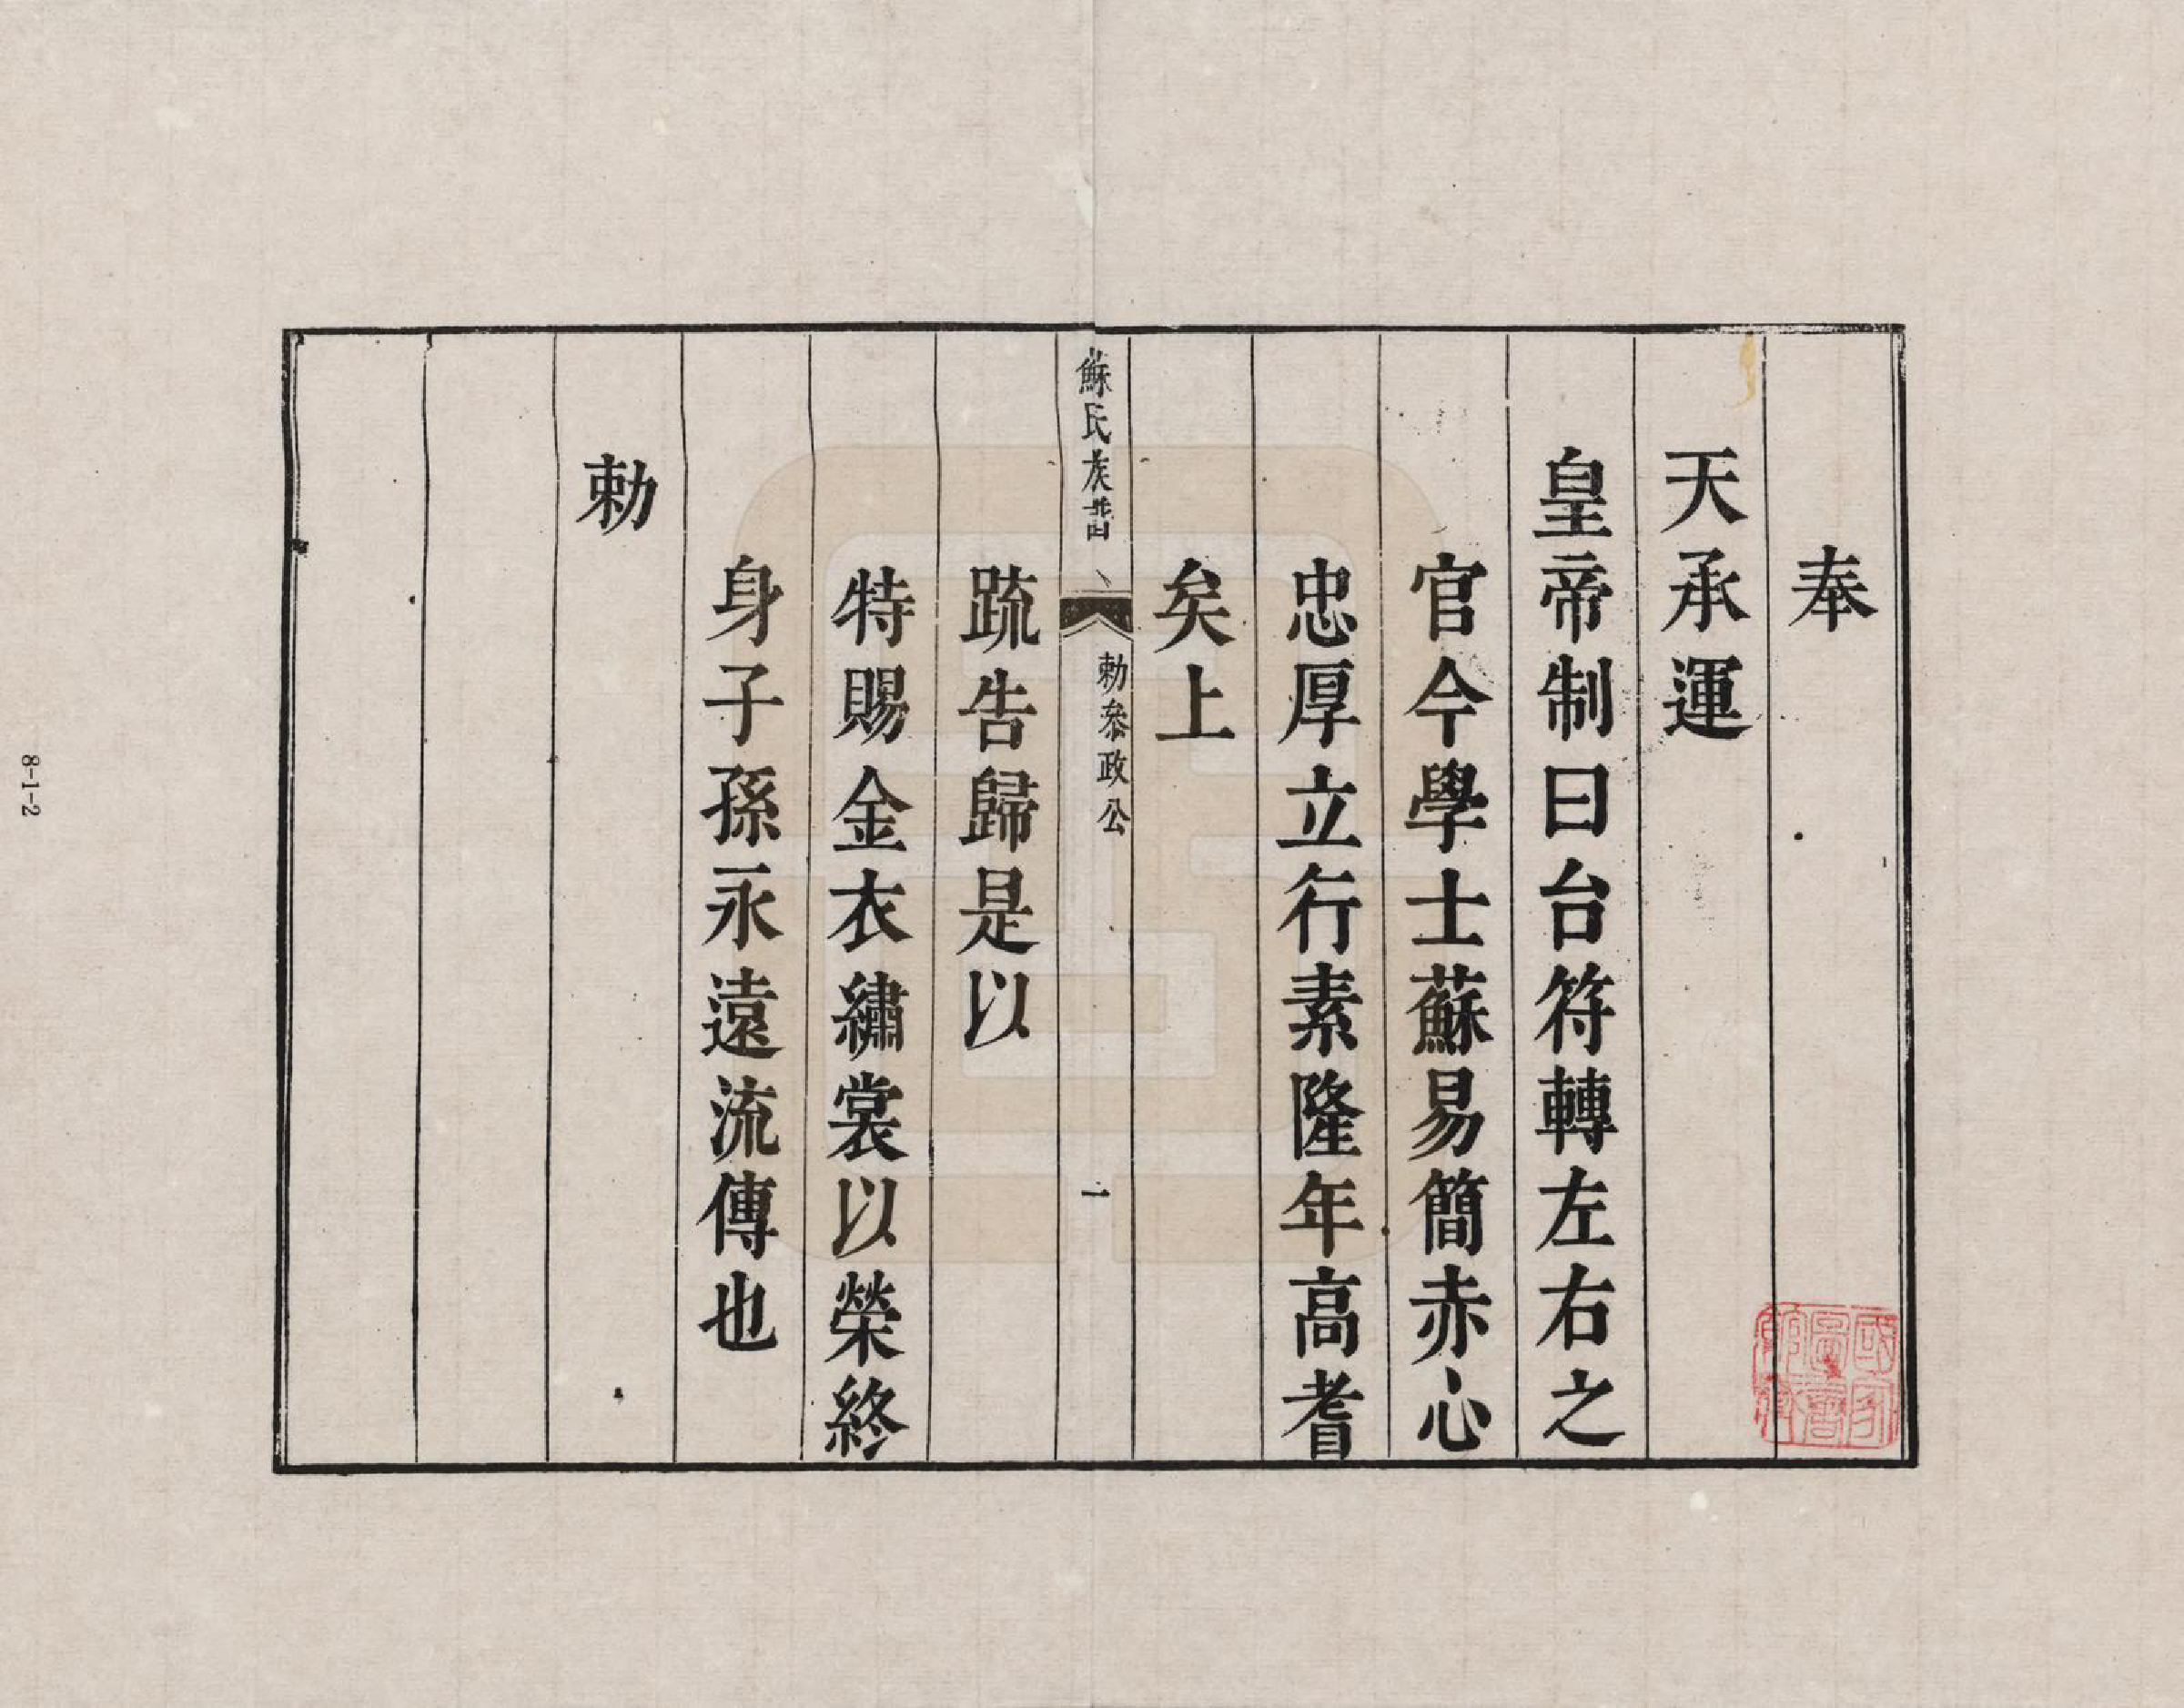 奉
天承運
皇帝制曰台符轉左右之
官今學士蘇易簡赤心
忠厚立行素隆年高耆
矣上
蘇氏族譜
勅叅政公
一
䟽告歸是以
特賜金衣繡裳以榮終
身子孫永遠流傳也
勅
國家圖書館藏
8-1-2